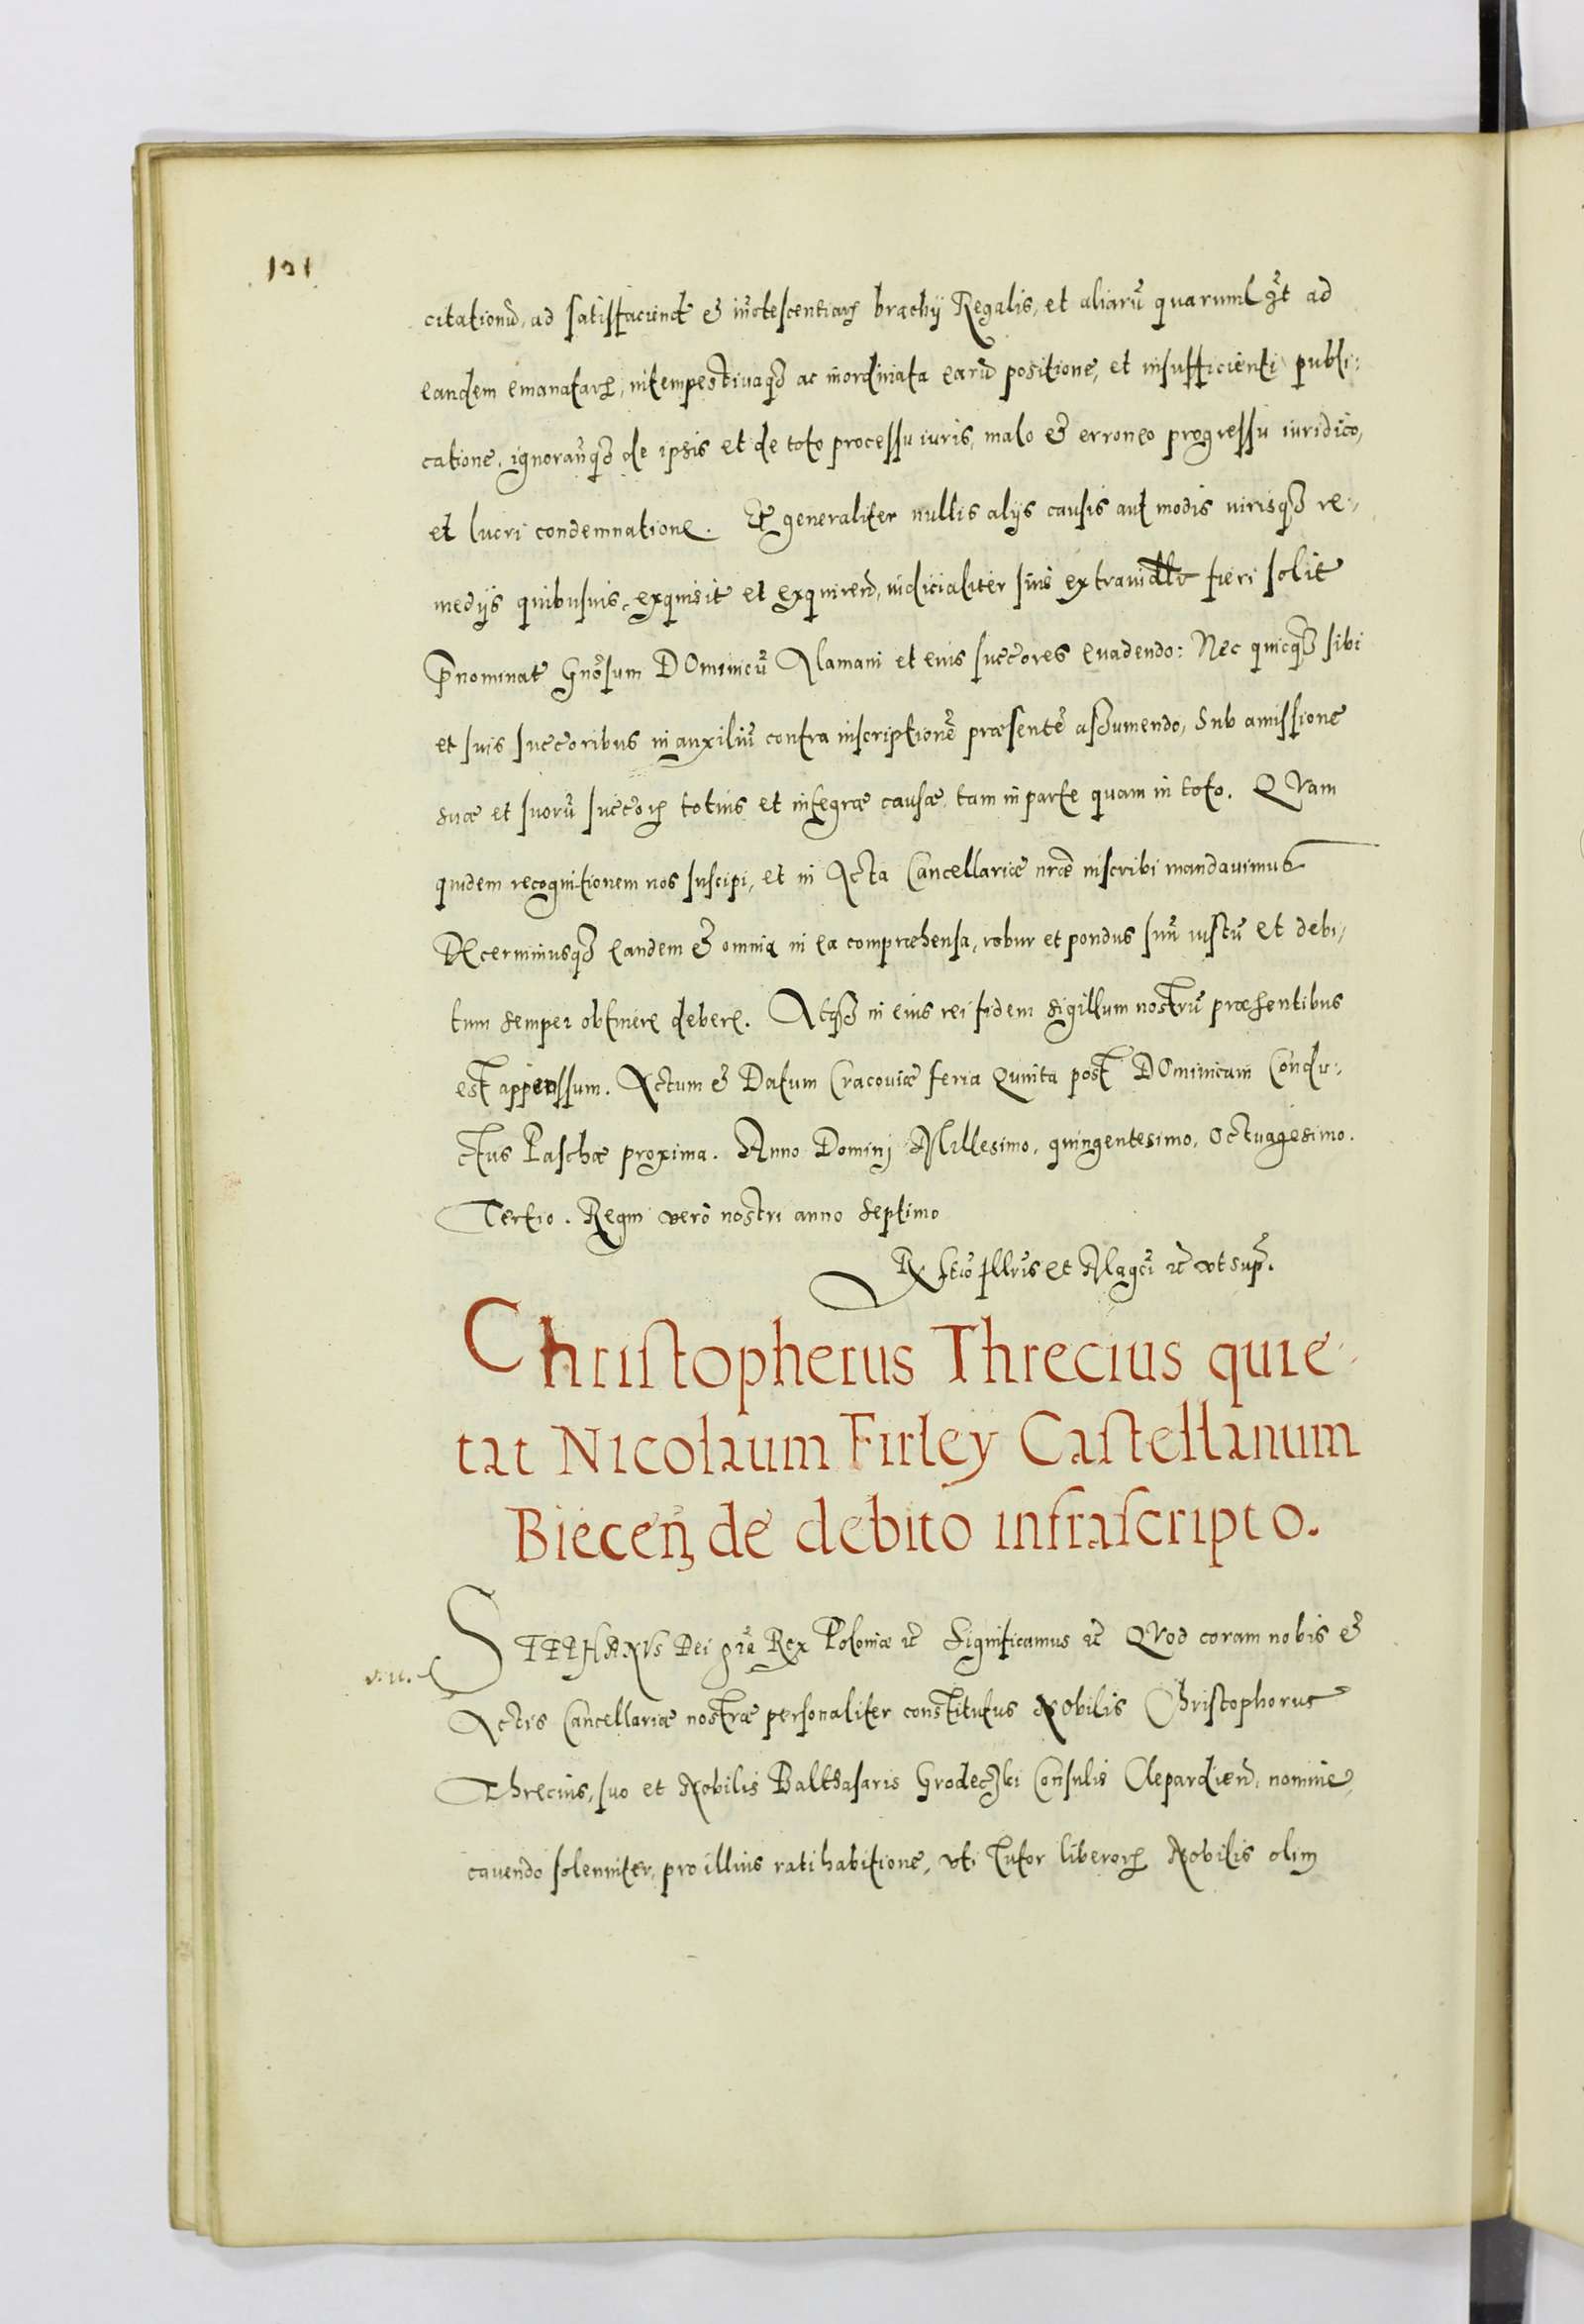 101
citationū, ad satisfaciend et in̄otescentiaꝝ brachij Regalis, et aliarū quaruml ad
eandem emanataꝝ, intempestivaqꝫ ac inordinata earū positione, et insufficienti publi:
catione, ignoran̄qꝫ de ipsis et de toto processu iuris, malo et erroneo progressu iuridico,
et lucri condemnatione. Et generaliter nullis alijs causis aut modis iurisqꝫ re-
medijs quibusuis, exquisit et exquirend, iudicialiter siue extraiudllr fieri solit
P̄nominat Gnōsum DOminicū Alamani et eius succ̄ores euadendo: Nec quicqꝫ sibi
et suis succ̄oribus in auxiliū contra inscriptionē præsentē assumendo, Sub amissione
suæ et suorū succ̄oꝝ totius et integræ causæ, tam in parte quam in toto. QVam
quidem recognitionem nos suscipi, et in Acta Cancellariæ nr̄æ inscribi mandauimus
DEcernimusqꝫ eandem et omnia in ea compræhensa, robur et pondus suū iustū et debi-
tum semper obtinere debere. Atqꝫ in eius rei fidem sigillum nostrū præsentibus
est appenssum. Actum et Datum Cracouiæ feria Quinta post DOminicam Condu-
ctus Paschæ proxima. Anno Domini Millesimo, quingentesimo, Octuagesimo.
Tertio. Regni vero nostri anno septimo
Rx Illris et Magci ꝛc̄ vt sup̄.
Christopherus Threcius quie-
tat Nicolaum Firley Castellanum
Biecen̄ de debito infrascripto.
STEPHANVS Dei gr̄a Rex Poloniæ ꝛc̄ Significamus ꝛc̄ QVod coram nobis et
Actis Cancellariæ nostræ personaliter constitutus Nobilis Christophorus
Threcius, suo et Nobilis Balthasaris Grodeczki Consulis Clepardien̄, nomine,
cauendo solenniter, pro illius ratihabitione, vti Tutor liberoꝝ Nobilis olim